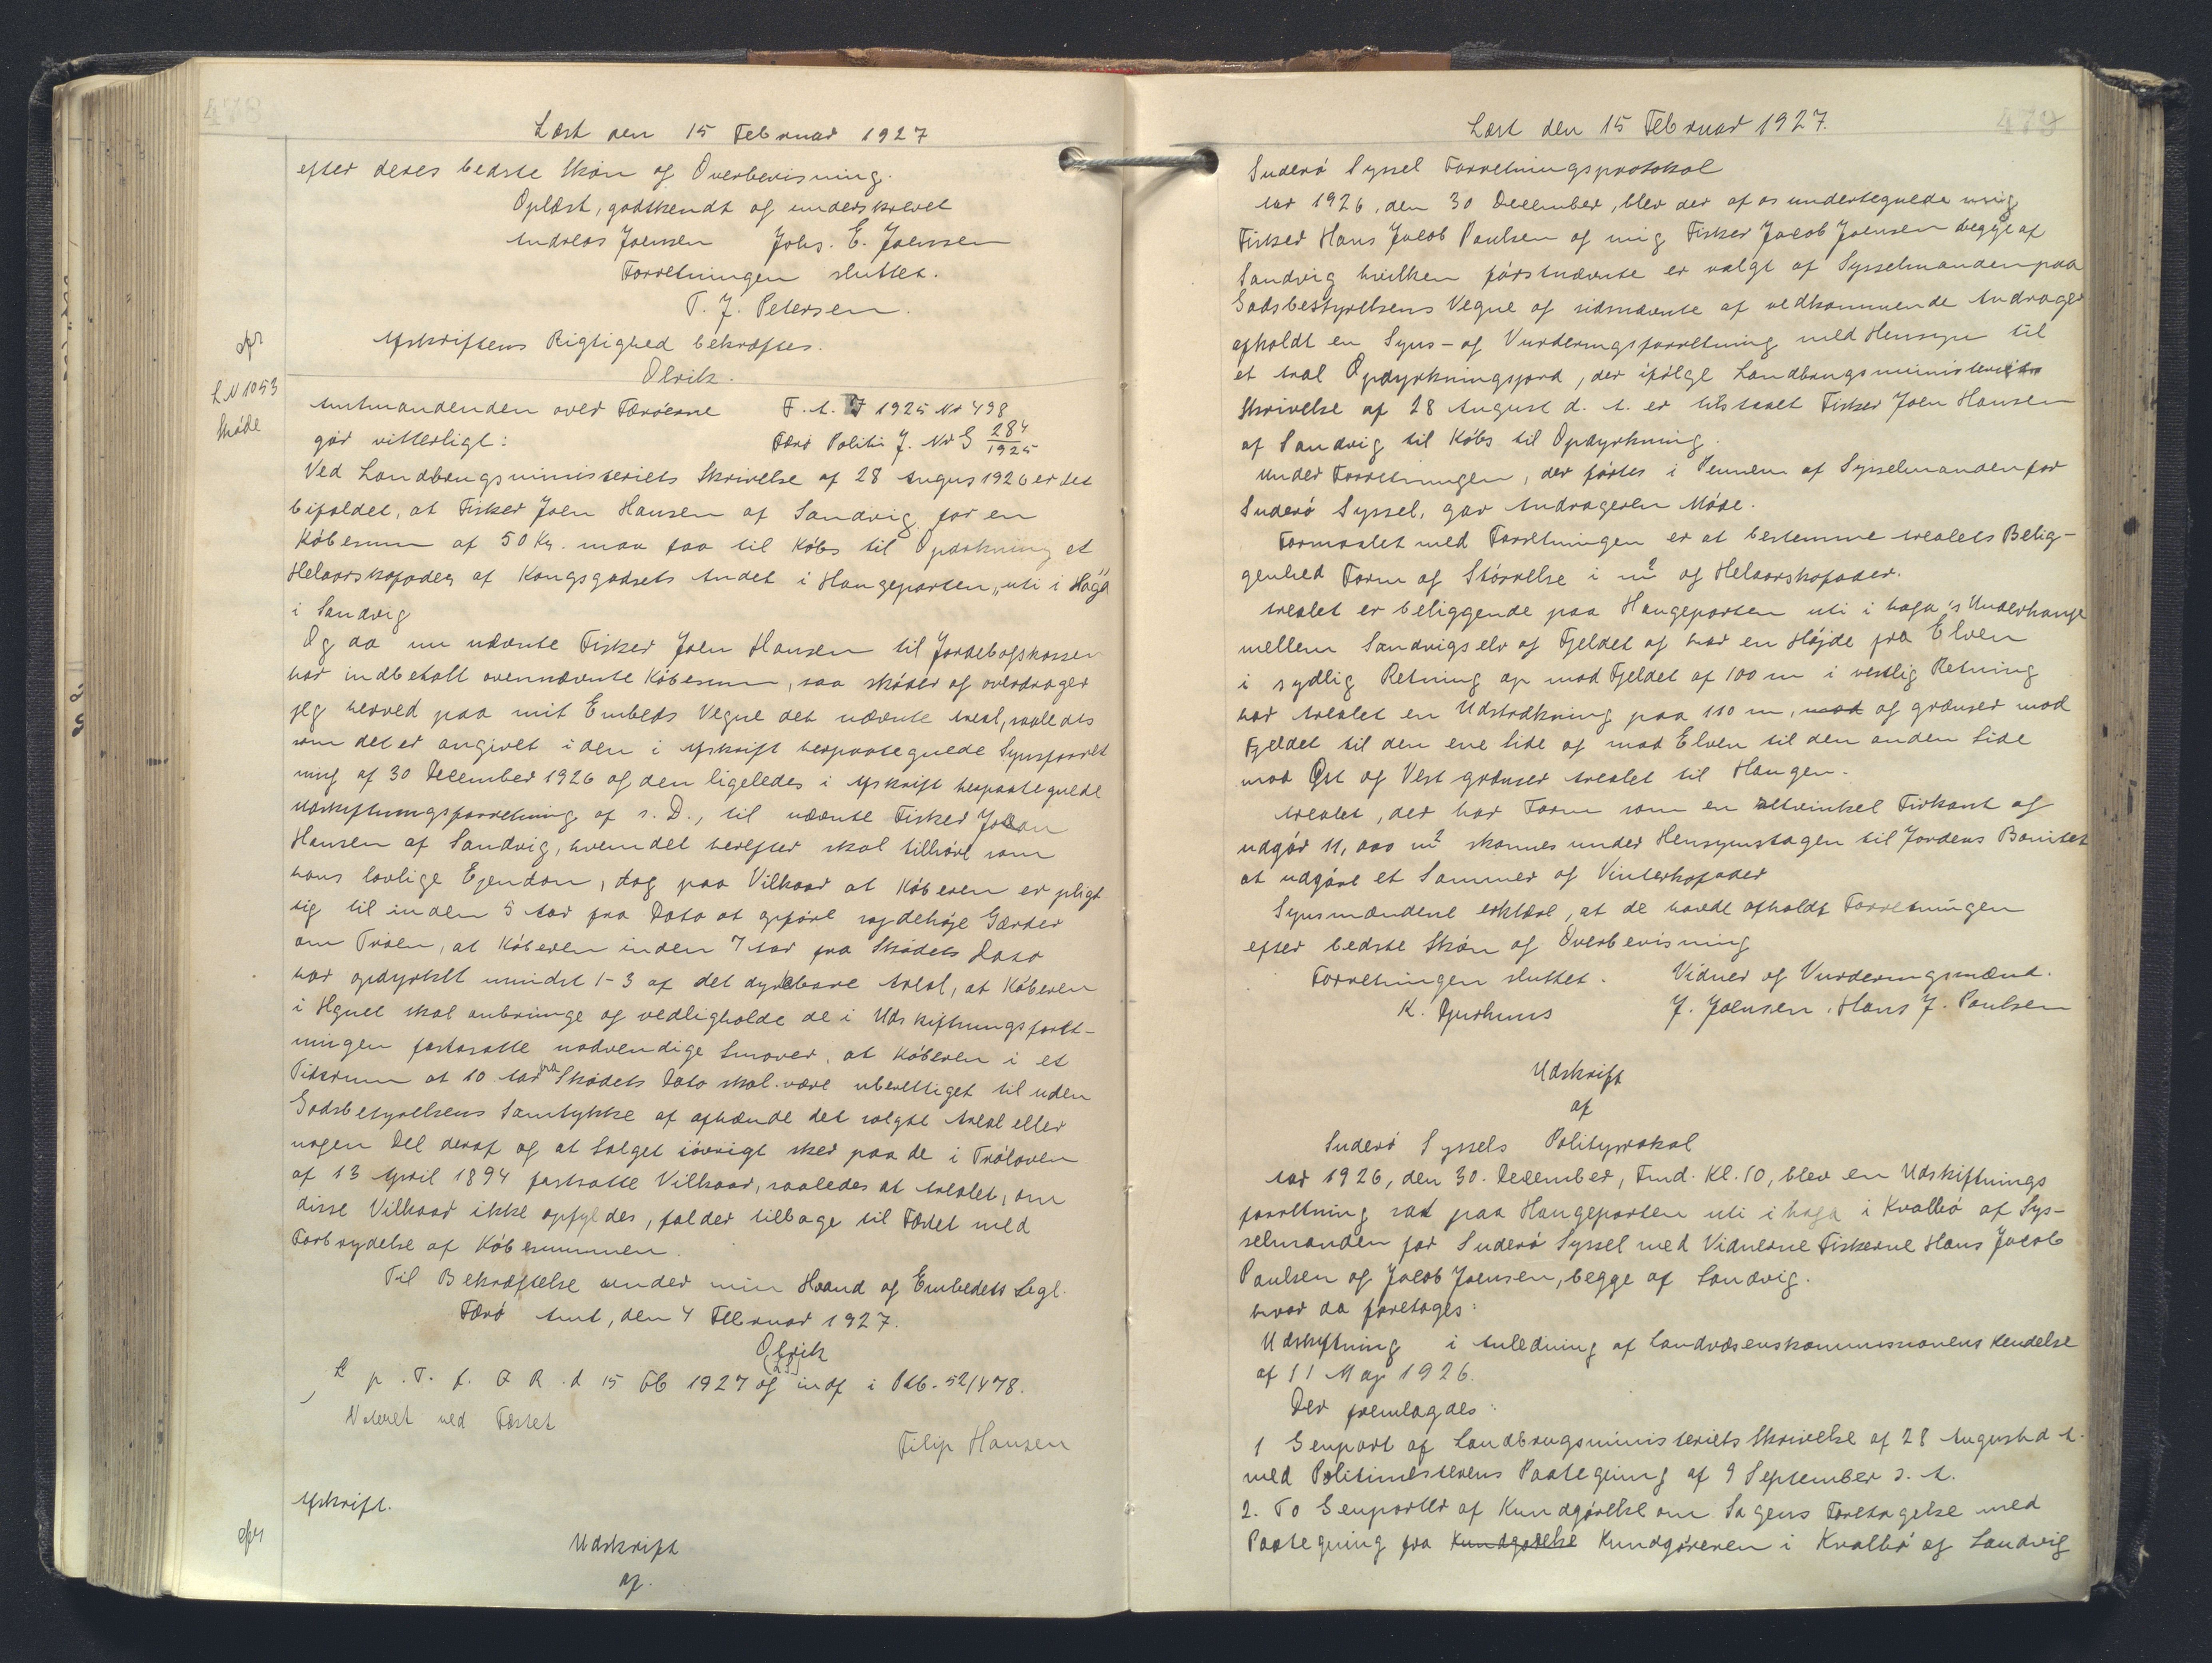 478
Læst den 15 Februar 1927
efter deres bedste Skøn og Overbevisning.
Oplæst, godtkendt og underskrevet
Andreas Joensen Johs. E. Joensen
Forretningen sluttet.
T. J. Petersen.
Afskriftens Rigtighed bekræftes.
Olrik.
afs
L N 1053
Skøde
Amtmandenden over Færøerne F. A. J 1925 Nr 498
gør vitterligt: Færø Politi J. Nr G 284/1925
Ved Landbrugsministeriets Skrivelse af 28 Augus 1926 er det
bifaldet, at Fisker Joen Hansen af Sandvig for en
Købesum af 50 Kr. maa faa til Købs til Opdrkning et
Helaarskofoder af Kongsgodsets Andel i Haugeparten „uti i Haga"
i Sandvig
Og da nu nævnte Fisker Joen Hansen til Jordebogskassen
har indbetalt ovennævnte Købesum, saa skøder og overdrager
jeg herved paa mit Embeds Vegne det nævnte Areal, saaledes
som det er angivet i den i Afskrift herpaategnede Synsforret
ning af 30 December 1926 og den ligeledes i Afskrift herpaategnede
Udskiftningsforretning af s. D., til nævnte Fisker Joan
Hansen af Sandvig, hvem det herefter skal tilhøre som
hans lovlige Ejendom, dog paa Vilkaar at Køberen er pligt
tig til inden 5 Aar fra Dato at opføre sojdehøje Gærder
om Trøen, at Køberen inden 7 Aar fra Skødets Dato
har opdyrket mindst 1-3 af det dyrkbare Areal, at Køberen
i Hegnet skal anbringe og vedligholde de i Udskiftningsforet-
ningen fastsatte nødvendige Smover, at Køberen i et
Tidsrum at 10 Aar fra Skødets Dato skal være uberettiget til uden
Godsbestyrelsens Samtykke at afhænde det solgte Areal eller
nogen Del deraf og at Salget iøvrigt sker paa de i Trøloven
af 13 April 1894 fastsatte Vilkaar, saaledes at Arealet, om
disse Vilkaar ikke opfyldes, falder tilbage til Fæstet med
Forbrydelse af Købesummen.
Til Bekræftelse under min Haand og Embedets Segl.
Færø Amt, den 4 Februar 1927.
Olrik
(LS)
L p. T. f. Ø R. d 15 Feb 1927 og indf i Pdb. 52/478.
Noteret ved Fæstet
Filip Hansen
Afskrift.
afs
Udskrift
af.
479
Læst den 15 Februar 1927.
Suderø Syssel Forretningsprotokol
Aar 1926, den 30 December, blev der af os undertegnede mig
Fisker Hans Jacob Poulsen og mig Fisker Jacob Joensen begge af
Sandvig hvilken førstnævnte er valgt af Sysselmanden paa
Godsbestyrelsens Vegne og sidsnævnte af vedkommende Andrager
afholdt en Syns- og Vurderingsforretning med Hensyn til
et Areal Opdyrkningsjord, der ifølge Landbrugsministeriets
Skrivelse af 28 August d. A. er tilstaaet Fisker Joen Hansen
af Sandvig til Købs til Opdyrkning.
Under Forretningen, der førtes i Pennen af Sysselmanden for
Suderø Syssel, gav Andrageren Møde.
Formaalet med Forretningen er at bestemme Arealets Belig-
genhed Form og Størrelse i m² og Helaarskofoder.
Arealet er beliggende paa Haugeparten uti i haga's Underhauge
mellem Sandvigs elv og Fjeldet og har en Højde fra Elven
i sydlig Retning op mod Fjeldet af 100 m i vestlig Retning
har Arealet en Udstrækning paa 110 m, mod og grænser mod
Fjeldet til den ene Side og mod Elven til den anden Side
mod Øst og Vest grænser Arealet til Haugen.
Arealet, der har Form som en Retvinkel Firkant og
udgør 11,000 m² skønnes under Hensynstagen til Jordens Bonitet
at udgøre et Sommer og Vinterkofoder
Synsmændene erklære, at de havde afholdt Forretningen
efter bedste Skøn og Overbevisning
Forretningen sluttet. Vidner og Vurderingsmænd.
K. Djurhuus J. Joensen, Hans J. Poulsen
Udskrift
af
Suderø Syssels Politiprokol
Aar 1926, den 30. December, Fmd. Kl. 10, blev en Udskiftnings
forretning sat paa Haugeparten uti i haga i Kvalbø af Sys-
selmanden for Suderø Syssel med Vidnerne Fiskerne Hans Jacob
Poulsen og Jacob Joensen, begge af Sandvig.
hvor da foretoges:
Udskiftning i Anledning af Landvæsenskommissionens Kendelse
af 11 Maj 1926.
Der fremlagdes:
1 Genpart af Landbrugsministeriets Skrivelse af 28 August d A.
med Politimesterens Paategning af 9 September s. A.
2. To Genparter af Kundgørelse om Sagens Foretagelse med
Paategning fra Kundgørelse Kundgøreren i Kvalbø og Sandvig